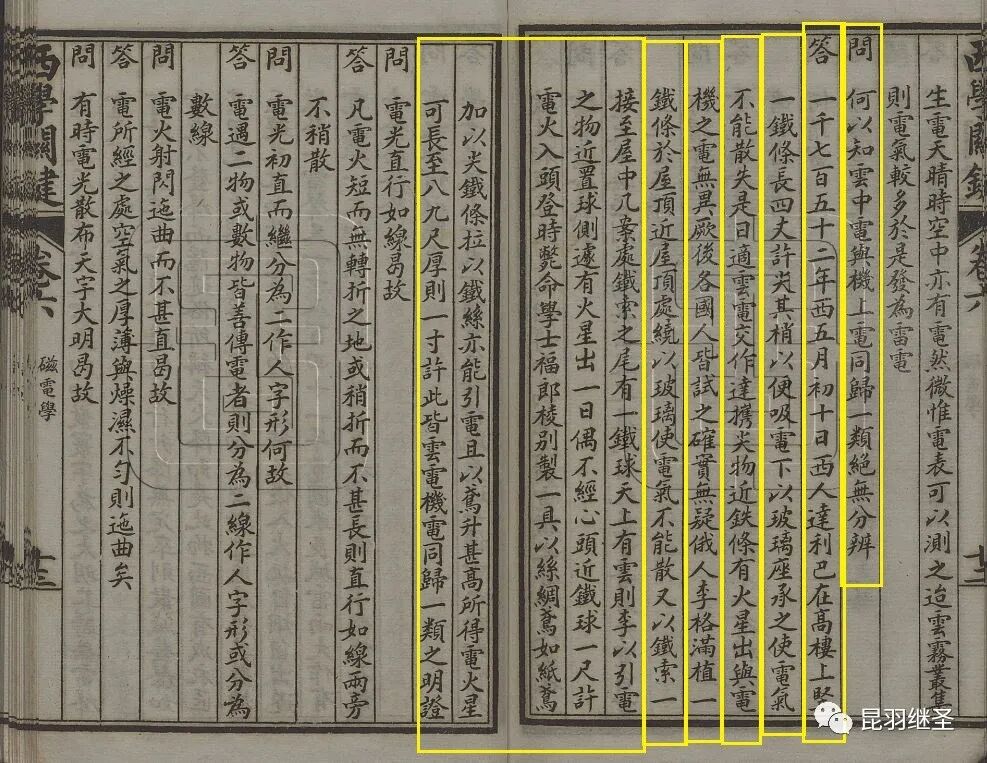 西學關鍵
卷六
生電天晴時空中亦有電然微惟電表可以測之迨雲霧叢集
則電氣較多於是發為雷電
問 何以知雲中雷與機上電同歸一類絕無分辨
答 一千七百五十二年西五月初十日西人達利巴在高樓上竪
一鐵條長四丈許尖其梢以便吸電下以玻璃座承之使電氣
不能散失是日適雲電交作達攜尖物近鉄條有火星出與電
機之電無異厥後各國人皆試之確實無疑俄人李格滿植一
鐵條於屋頂近屋頂處繞以玻璃使電氣不能散又以鐵索一
接至屋中几案處鐵索之尾有一鐵球天上有雲則李以引電
之物近置球側遽有火星出一日偶不經心頭近鐵球一尺許
電火入頭登時斃命學士福郎棱別製一具以絲綢鳶如紙鳶
加以尖鐵條拉以鐵絲亦能引電且以鳶升甚高所得電火星
可長至八九尺厚則一寸許此皆雲電機電同歸一類之明證
問 電光直行如線曷故
答 凡電火短而無轉折之地或稍折而不甚長則直行如線兩旁
不稍散
問 電光初直而繼分為二作人字形何故
答 電遇二物或數物皆善傳電者則分為二線作人字形或分為
數線
問 電火射閃迤曲而不甚直曷故
答 電所經之處空氣之厚薄與燥濕不勻則迤曲矣
問 有時電光散布天字大明曷故
西學關鍵
卷六
磁電學
十三
昆羽继圣